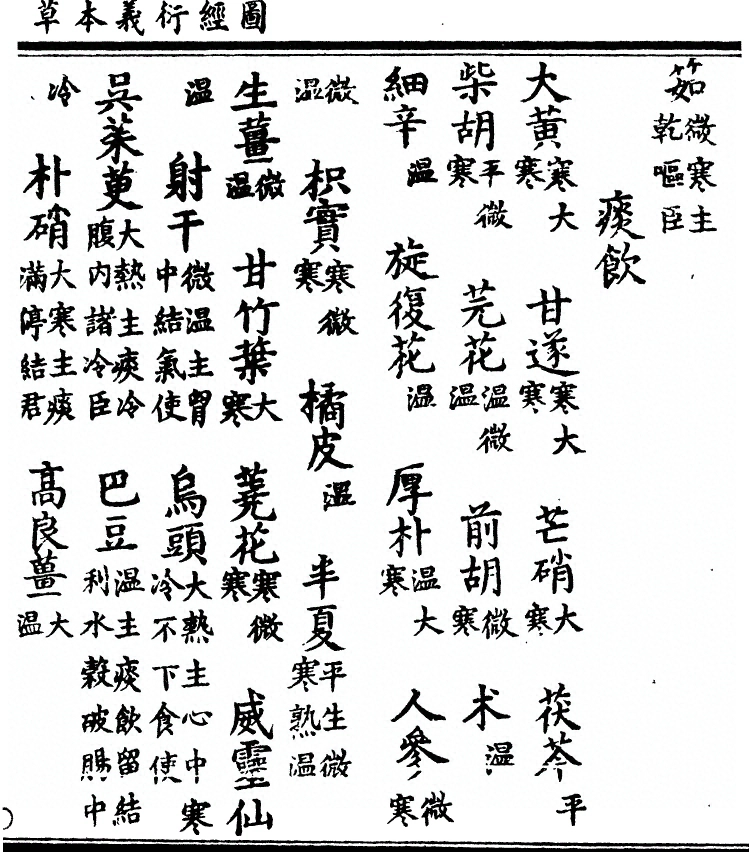 圖經衍義本草
茹微寒主乾嘔臣
痰飲
大黃寒大寒 甘遂寒大寒 芒硝大寒 茯苓平
柴胡平微寒 芫花溫微溫 前胡微寒 术溫
細辛溫 旋復花溫 厚朴溫大寒 人參微寒
微溫 枳實寒微寒 橘皮溫 半夏平生微寒熟溫
生薑微溫 甘竹葉大寒 蕘花寒微寒 威靈仙
溫 射干微溫主胷中結氣使 烏頭大熱主心中寒冷不下食使
吳茱萸大熱主痰冷腹內諸冷臣 巴豆溫主痰飲留結利水穀破腸中
冷 朴硝大寒主痰滿停結君 高良薑大溫